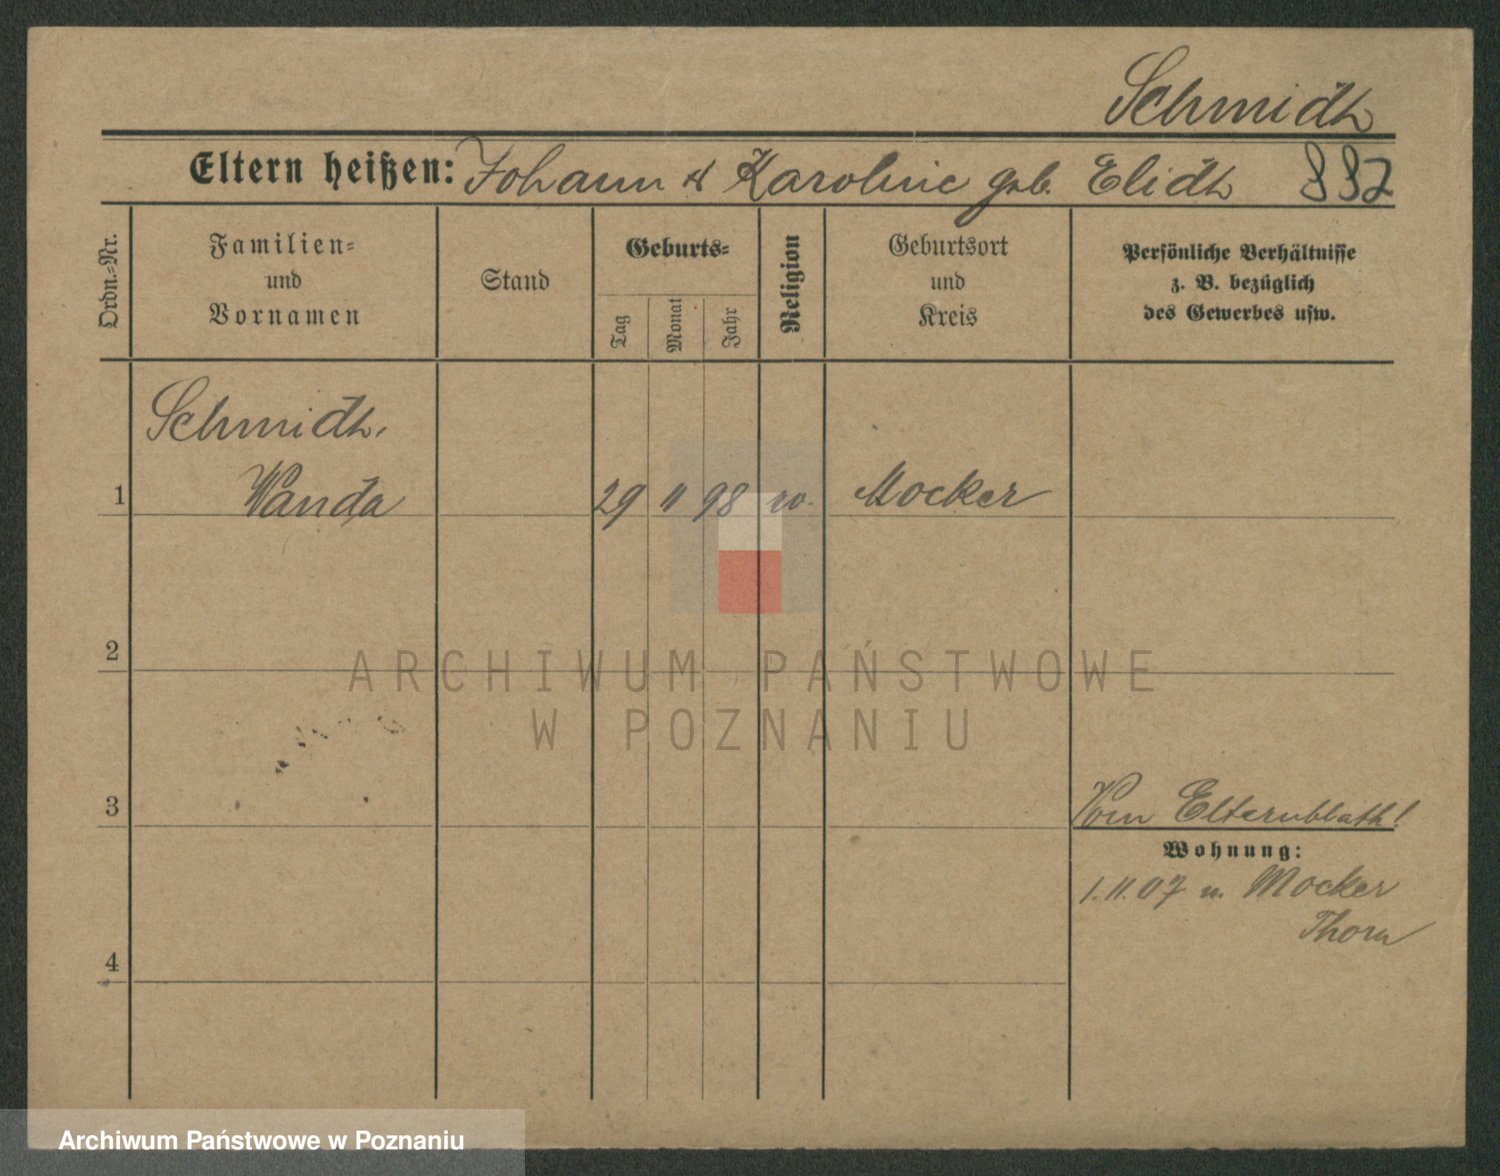 Schmidt
Eltern heißen: Johann & Karoline geb. 882
Ordn.-Nr.
Familien-
und
Vornamen
Stand
Geburts-
Tag
Monat
Jahr
Religion
Geburtsort
und
Kreis
Persönliche Verhältnisse
z. B. bezüglich
des Gewerbes usw.
Schmidt,
1 Wanda 29 11 98 Mocker
2
ARCHIWUM PAŃSTWOWE
W POZNANIU
3
Vom Elternblatt!
Wohnung:
1.11.07 n. Mocker
Thorn
4
Archiwum Państwowe w Poznaniu